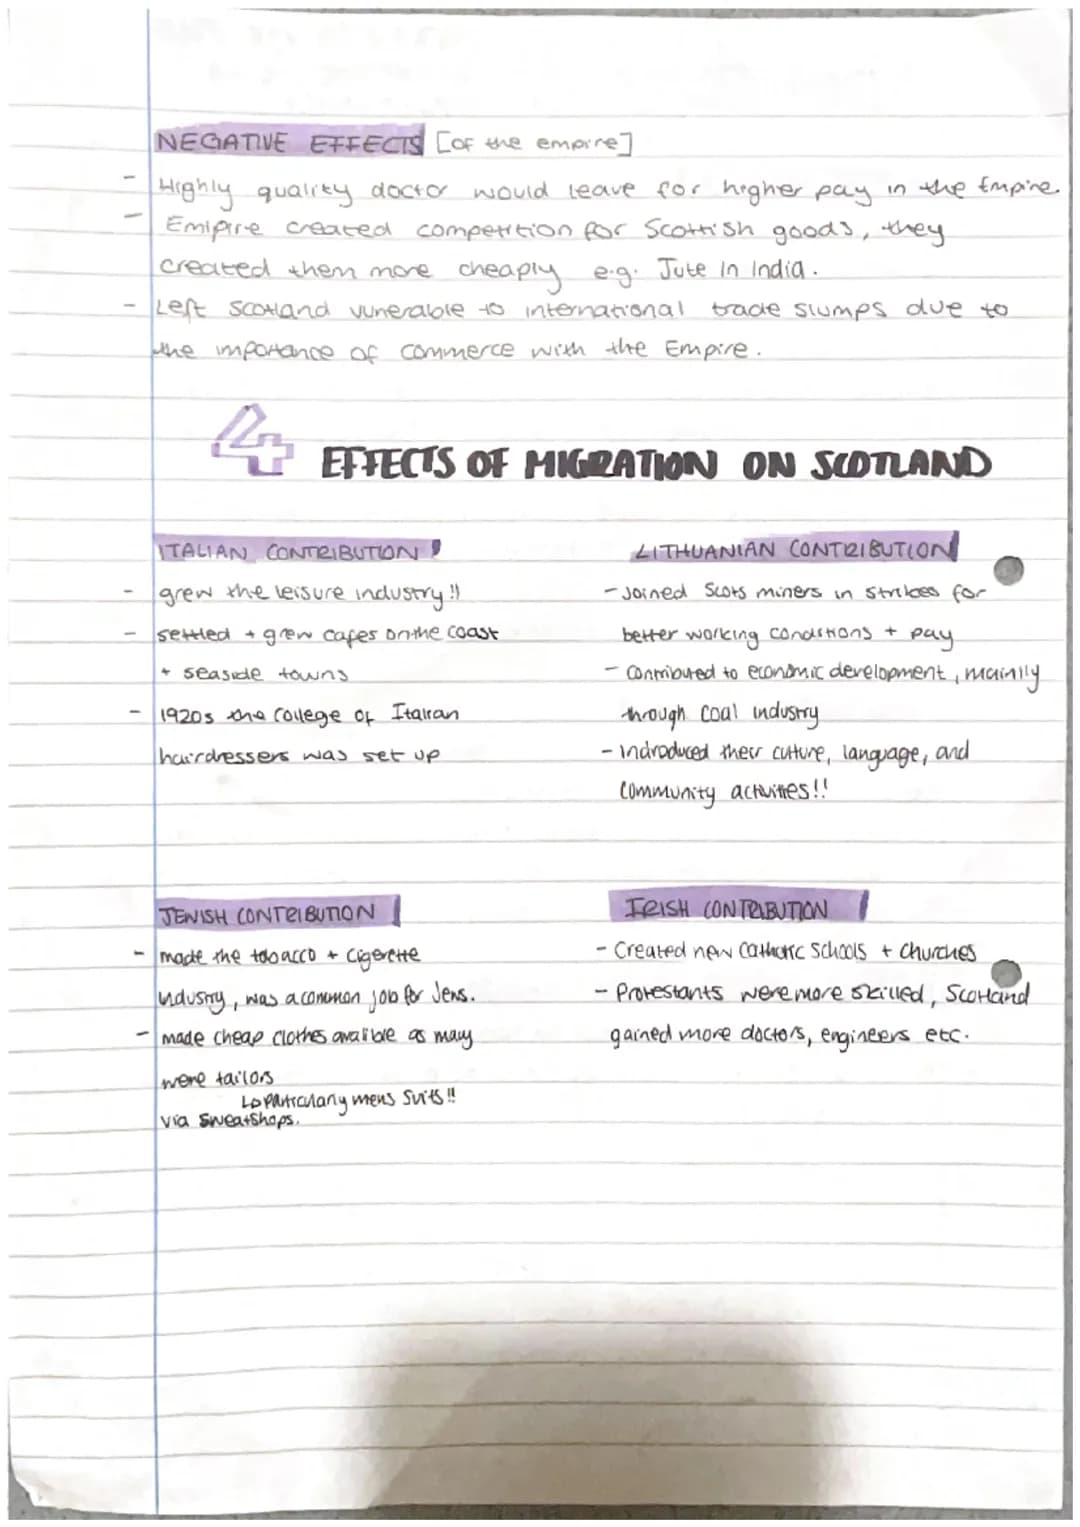 NEGATIVE EFFECTS [of the empire]
- Highly quality doctor would leave for higher pay in the Empire.
- Emipire created competition for Scottish goods, they
created them more cheaply e.g. Jute in India.
- Left Scotland vunerable to international trade slumps due to
the importance of commerce with the Empire.
4 EFFECTS OF MIGRATION ON SCOTLAND
ITALIAN CONTRIBUTION
- grew the leisure industry!!
- settled + grew cafes on the coast
+ seaside towns
- 1920s the college of Italian
hairdressers was set up
LITHUANIAN CONTRIBUTION
- Joined Scots miners in strikes for
better working conditions + pay
- Contributed to economic development, mainily
through coal industry
- indroduced their culture, language, and
community activities!!
JEWISH CONTRIBUTION
- made the tobacco + cigerette
industry, was a common job for Jews.
- made cheap clothes avalible as many
were tailors
↳ particulary mens suits!!
via sweatshops.
IRISH CONTRIBUTION
- Created new Catholic Schools + Churches
- Protestants were more skilled, Scotland
gained more doctors, engineers etc.